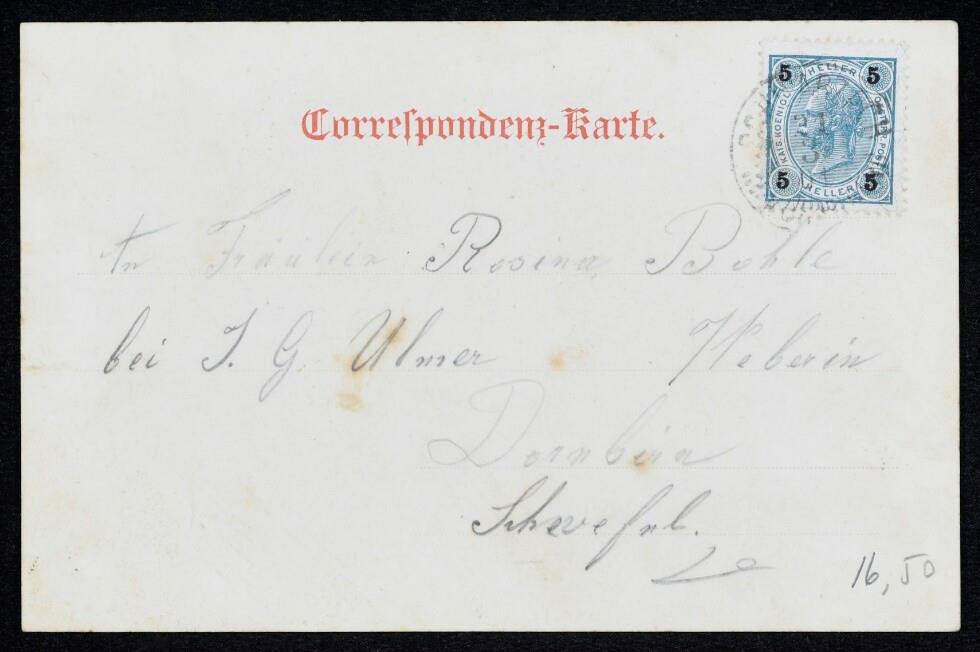 Correspondenz-Karte.
5 HELLER 5
KAIS. KOENIGL. OESTERR. POST
5 HELLER 5
An Fräulein Rosina Bohle
bei J. G. Ulmer Weberin
Dornbirn
16,50